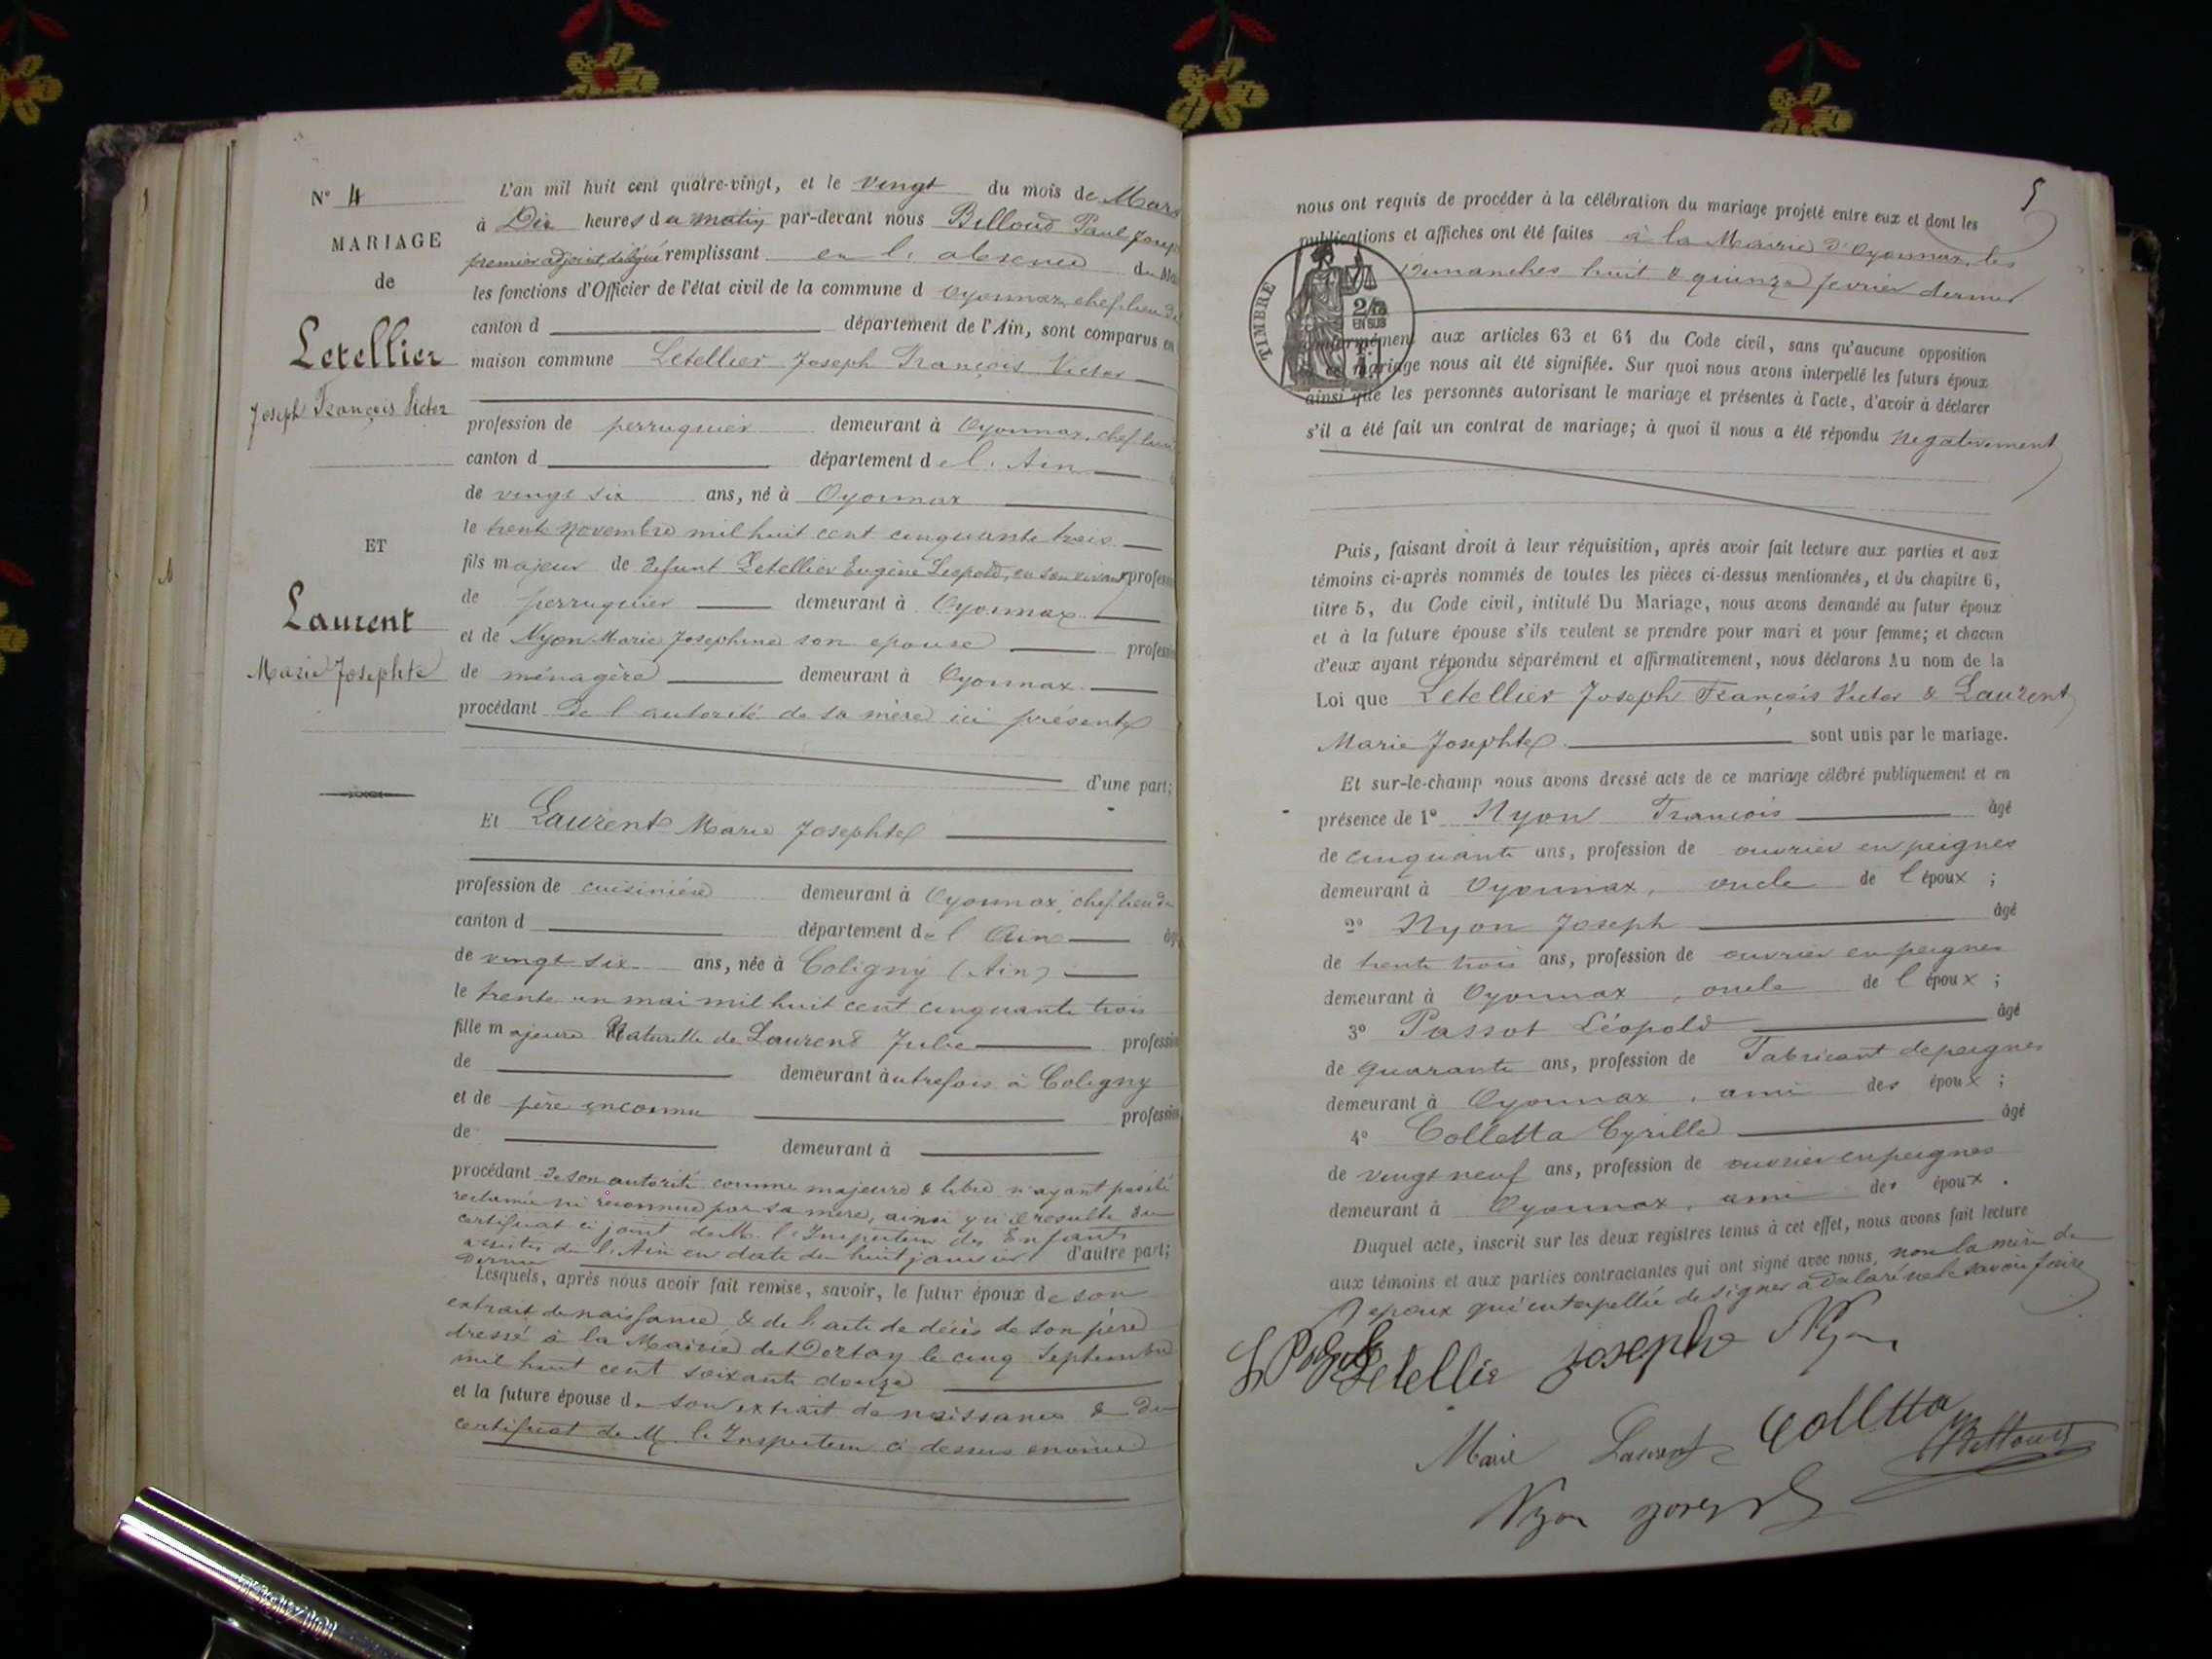 N° 4
MARIAGE
de
Letellier
Joseph François Victor
ET
Laurent
Marie Josephte
L'an mil huit cent quatre-vingt, et le vingt du mois de Mars
à Dix heures du matin par-devant nous Billoud Paul Josep
premier adjoint délégué remplissant en l'absence du
les fonctions d'Officier de l'état civil de la commune d Oyonnax, chef lieu de
canton d département de l'Ain, sont comparus en
maison commune Letellier Joseph François Victor
profession de perruquier demeurant à Oyonnax, chef lieu
canton d département de l'Ain
de vingt six ans, né à Oyonnax
le trente Novembre mil huit cent cinquante trois
fils majeur de defunt Letellier Eugène Léopold, en son vivant profession
de perruquier demeurant à Oyonnax
et de Nyon Marie Josephine son epouse profession
de ménagère demeurant à Oyonnax
procédant de l'autorité de sa mère ici présente
d'une part;
Et Laurent Marie Josephte
profession de cuisinière demeurant à Oyonnax, chef lieu de
canton d département de l'Ain âgé
de vingt six ans, née à Coligny (Ain)
le trente un mai mil huit cent cinquante trois
fille majeure Naturelle de Laurent Julie profession
de demeurant autrefois à Coligny
et de père inconnu profession
de demeurant à
procédant de son autorité comme majeure & libre n'ayant pas été
reclamée ni reconnue par sa mère, ainsi qu'il resulte du
certificat ci joint de M. l'Inspecteur des Enfants
assistés de l'Ain en date du huit janvier d'autre part;
dernier
Lesquels, après nous avoir fait remise, savoir, le futur époux de son
extrait de naissance, & de l'acte de décès de son père
dressé à la Mairie de Dortan le cinq Septembre
mil huit cent soixante douze
et la future épouse de son extrait de naissance & du
certificat de M. l'Inspecteur ci dessus énoncé
5
nous ont requis de procéder à la célébration du mariage projeté entre eux et dont les
publications et affiches ont été faites à la Mairie d'Oyonnax, les
Dimanches huit & quinze fevrier dernier
TIMBRE
2/10
EN SUS
conformément aux articles 63 et 64 du Code civil, sans qu'aucune opposition
mariage nous ait été signifiée. Sur quoi nous avons interpellé les futurs époux
ainsi que les personnes autorisant le mariage et présentes à l'acte, d'avoir à déclarer
s'il a été fait un contrat de mariage; à quoi il nous a été répondu négativement
Puis, faisant droit à leur réquisition, après avoir fait lecture aux parties et aux
témoins ci-après nommés de toutes les pièces ci-dessus mentionnées, et du chapitre 6,
titre 5, du Code civil, intitulé Du Mariage, nous avons demandé au futur époux
et à la future épouse s'ils veulent se prendre pour mari et pour femme; et chacun
d'eux ayant répondu séparément et affirmativement, nous déclarons Au nom de la
Loi que Letellier Joseph François Victor & Laurent
Marie Josephte sont unis par le mariage.
Et sur-le-champ nous avons dressé acte de ce mariage célébré publiquement et en
présence de 1° Nyon François âgé
de cinquante ans, profession de ouvrier en peignes
demeurant à Oyonnax, oncle de l'époux ;
2° Nyon Joseph âgé
de trente trois ans, profession de ouvrier en peignes
demeurant à Oyonnax, oncle de l'époux ;
3° Passot Léopold âgé
de quarante ans, profession de Fabricant de peignes
demeurant à Oyonnax, ami des époux ;
4° Colletta Cyrille âgé
de vingt neuf ans, profession de ouvrier en peignes
demeurant à Oyonnax, ami des époux.
Duquel acte, inscrit sur les deux registres tenus à cet effet, nous avons fait lecture
aux témoins et aux parties contractantes qui ont signé avec nous, non la mère de
l'epoux qui interpellée de signer a déclaré ne le savoir faire
Letellie Joseph Nyon
Marie Laurent Colletta
Billoud
Nyon